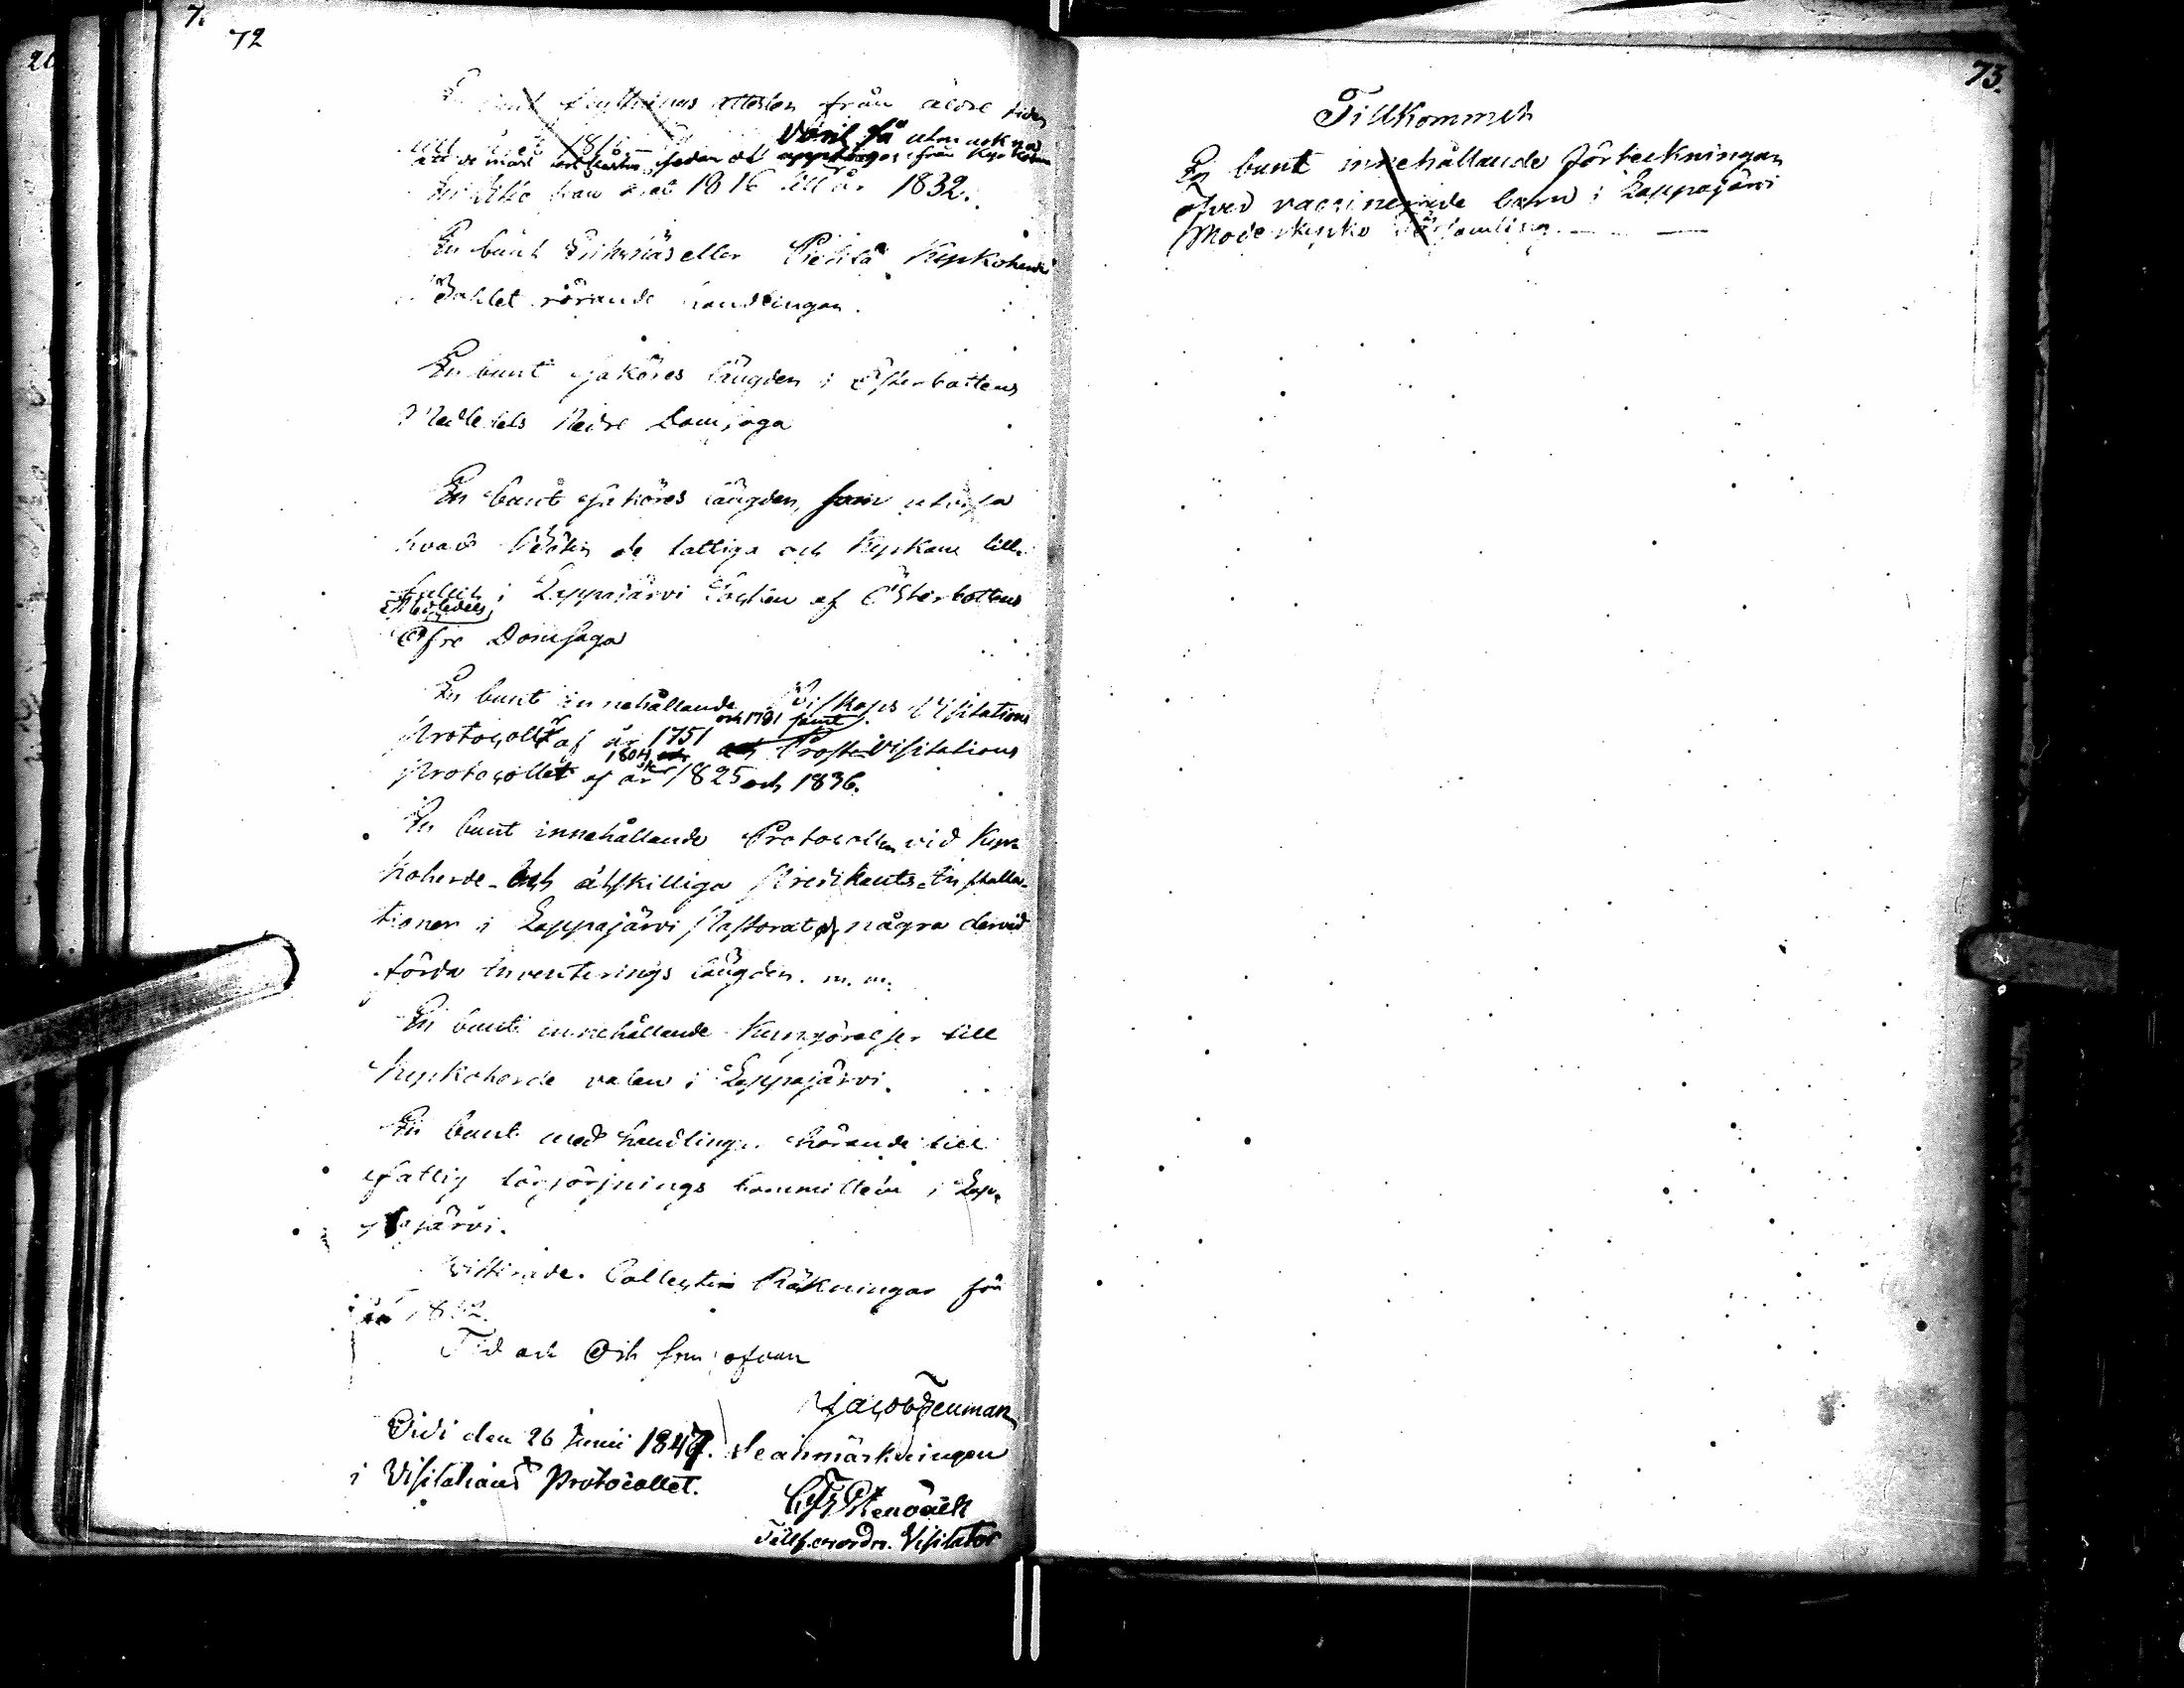 72
flyttnings attester från äldre tider
till året 1816
Varit få utom ock na
sedan de
från Kyrkoh
Dito från året 1816 till år 1832.
En bunt eller Pielilä Kyrkoherde
Vahlet rörande handlingar.
En bunt Saköres längder i Österbottens
Medledels Nedre Domsaga
En bunt Saköres längder, som utvisa
hvad de fattiga och Kyrkan till-
fallit i Lappajärvi Socken af Österbottens
Medledels
Öfre Domsaga
En bunt innehållande Biskops Visitations
och 1791 samt
Protocollr af år 1751 och Prosta Visitations
1804,
Protocollet af år 1825 och 1836.
En bunt innehållande Protocoller vid Kyr-
koherde- och åtskilliga Predikants Installa-
tioner i Lappajärvi Pastorat och några dervid
förda Inventerings längder. m. m.
En bunt innehållande Kungörelser till
Kyrkoherde valen i Lappajärvi.
En bunt med handlingar hörande till
fattig försörjnings Committéen i Lap-
pajärvi.
Qvitterade Collecte Räkningar för
år 1832.
Tid och Ort som ofvan
Jacob Fenman
Vidi den 26 Junii 1847. Se anmärkningen
i Visitations Protocollet.
Stenbäck
Tillförordn. Visitator
73.
Tillkommit
En bunt innehållande förteckningar
öfver vaccinerade barn i Lappajärvi
Moderkyrko församling. — —